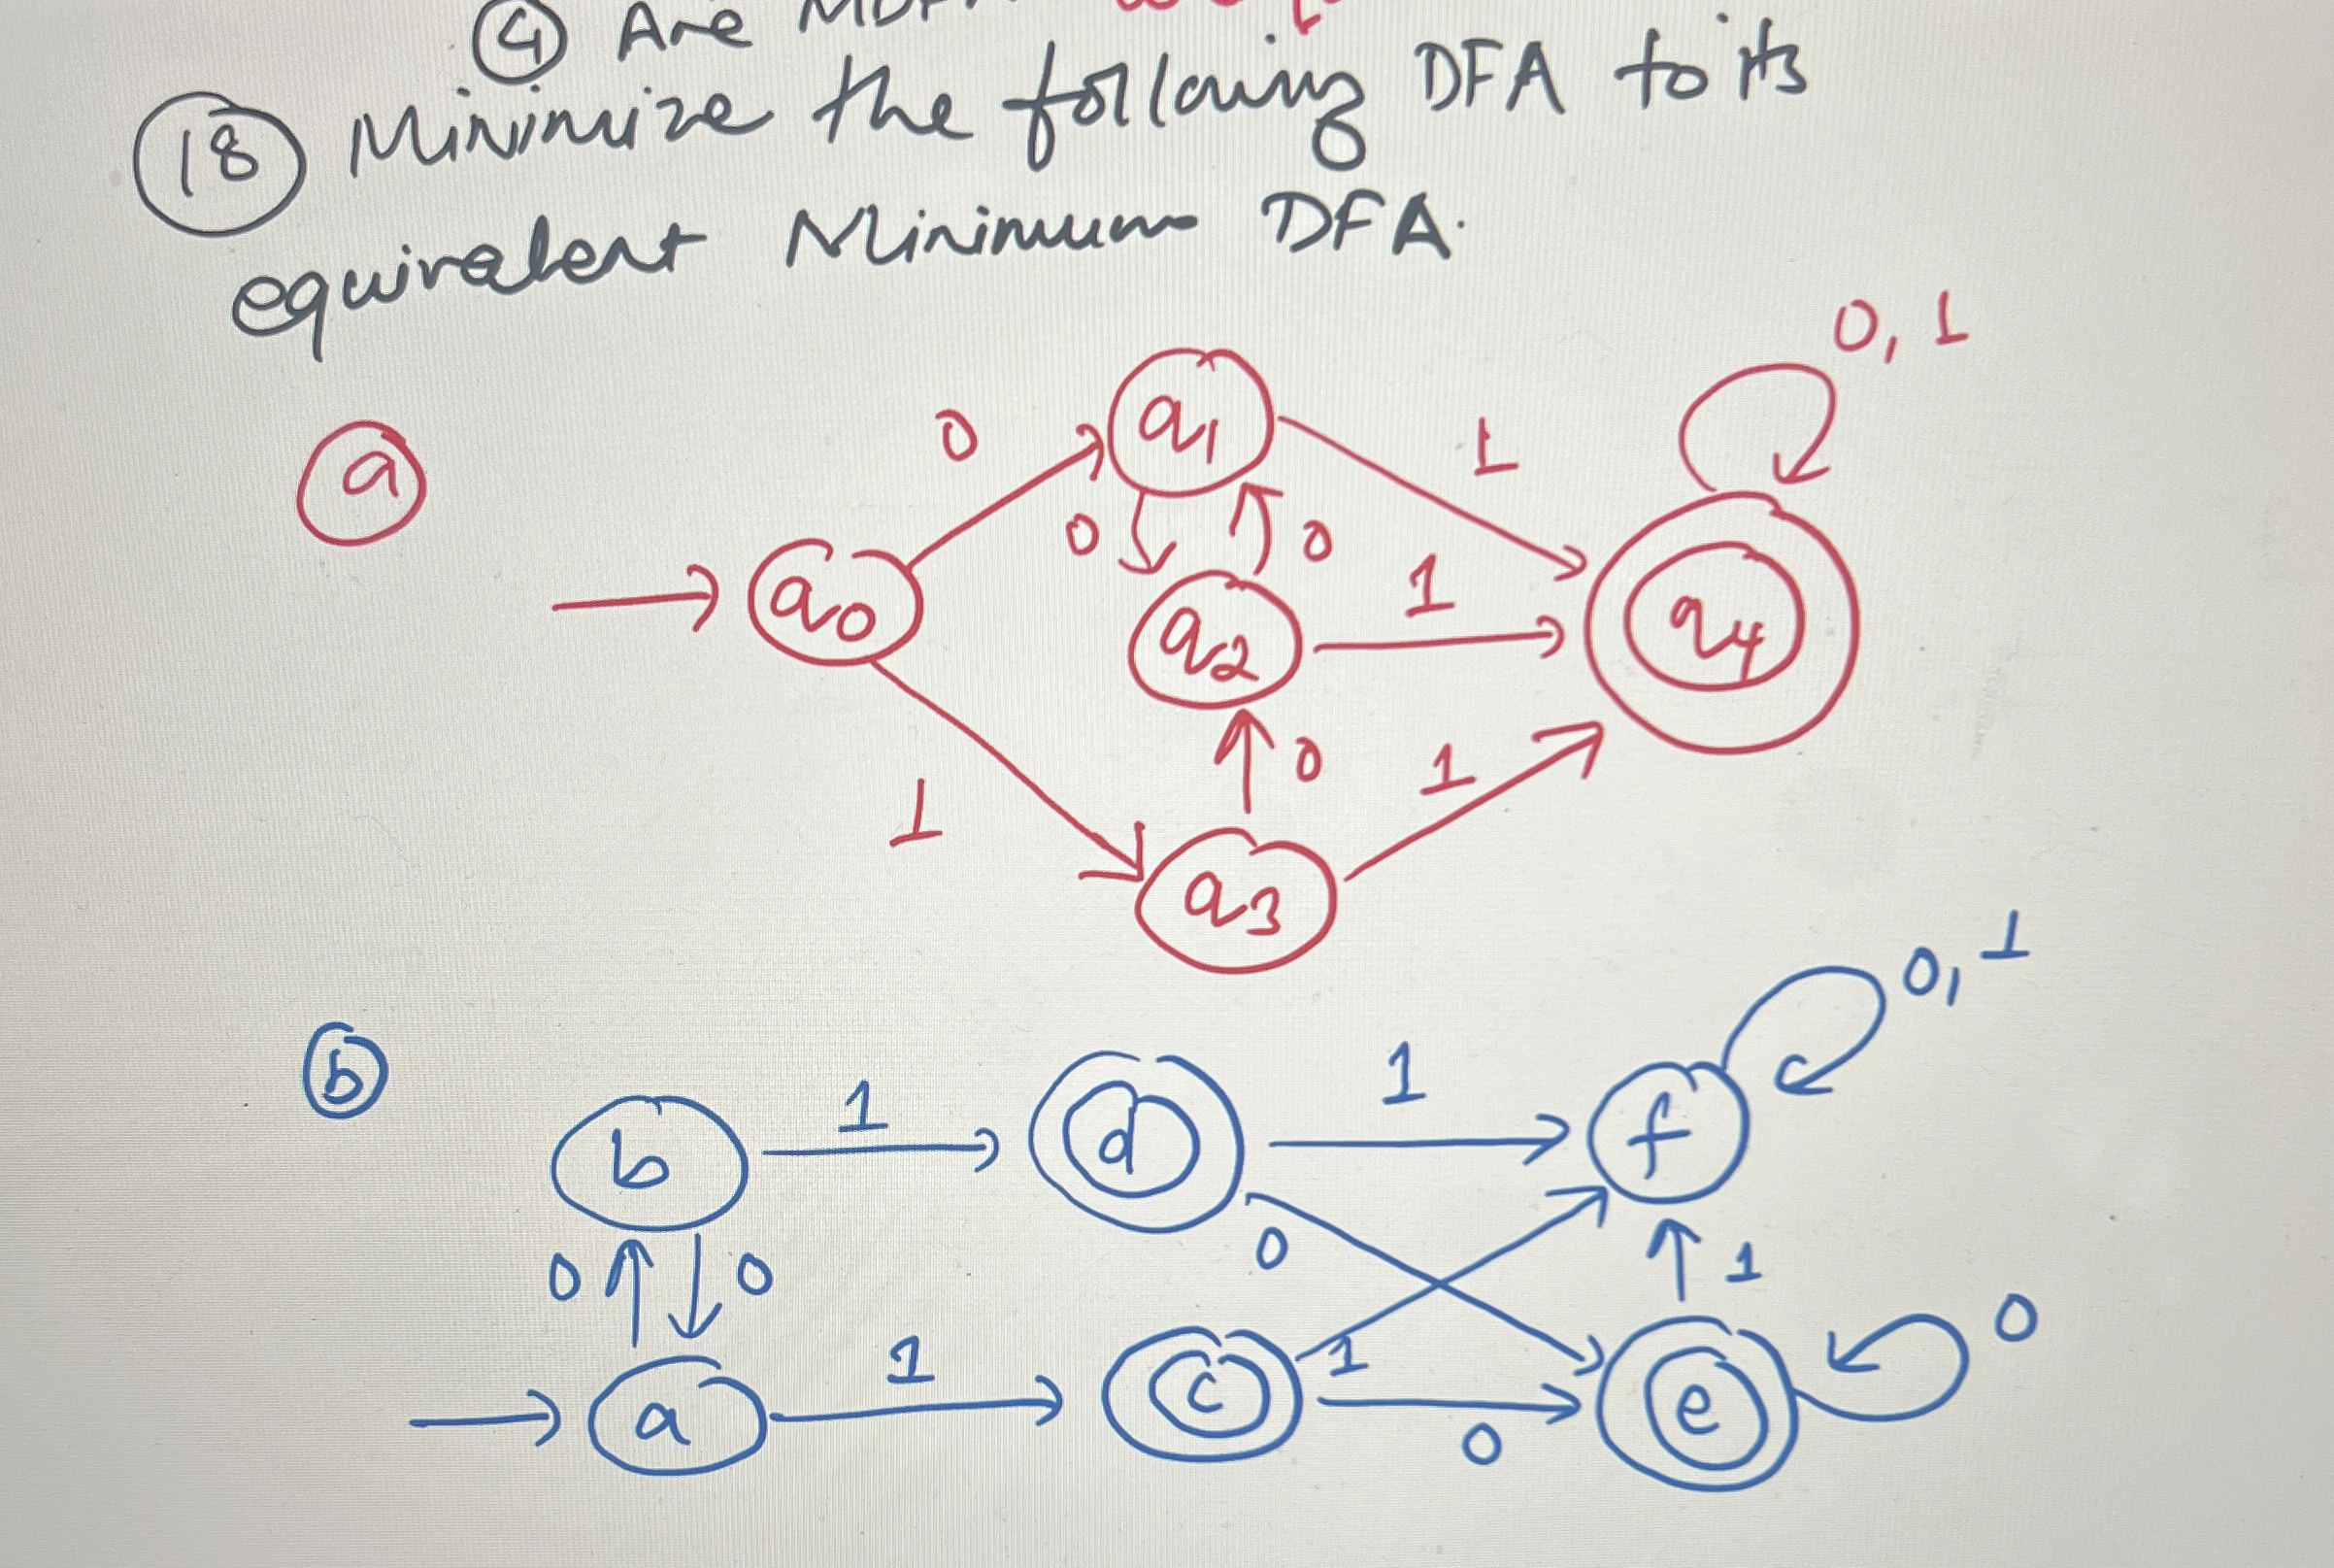 ④ Are
⑱ Minimize the following DFA to its
equivalent Minimum DFA.
0, 1
ⓐ
0
q1
1
0
0
q0
q2
1
q4
0
1
1
q3
0, 1
ⓑ
b
1
d
1
f
0
0
0
1
0
a
1
c
1
0
e